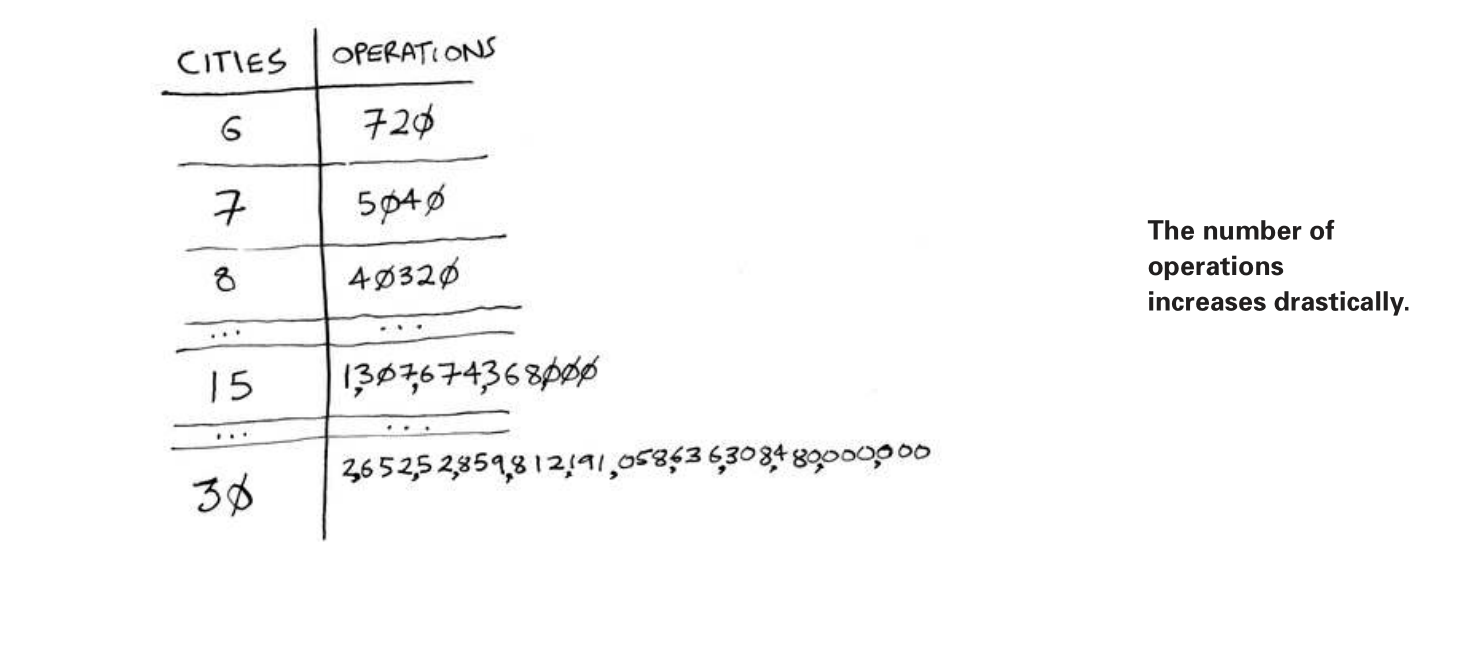 CITIES OPERATIONS
6 720
7 5040
8 40320
... ...
15 1,307,674,368000
... ...
30 2,652,52,859,812,191,058,636,308,480,000,000
The number of
operations
increases drastically.